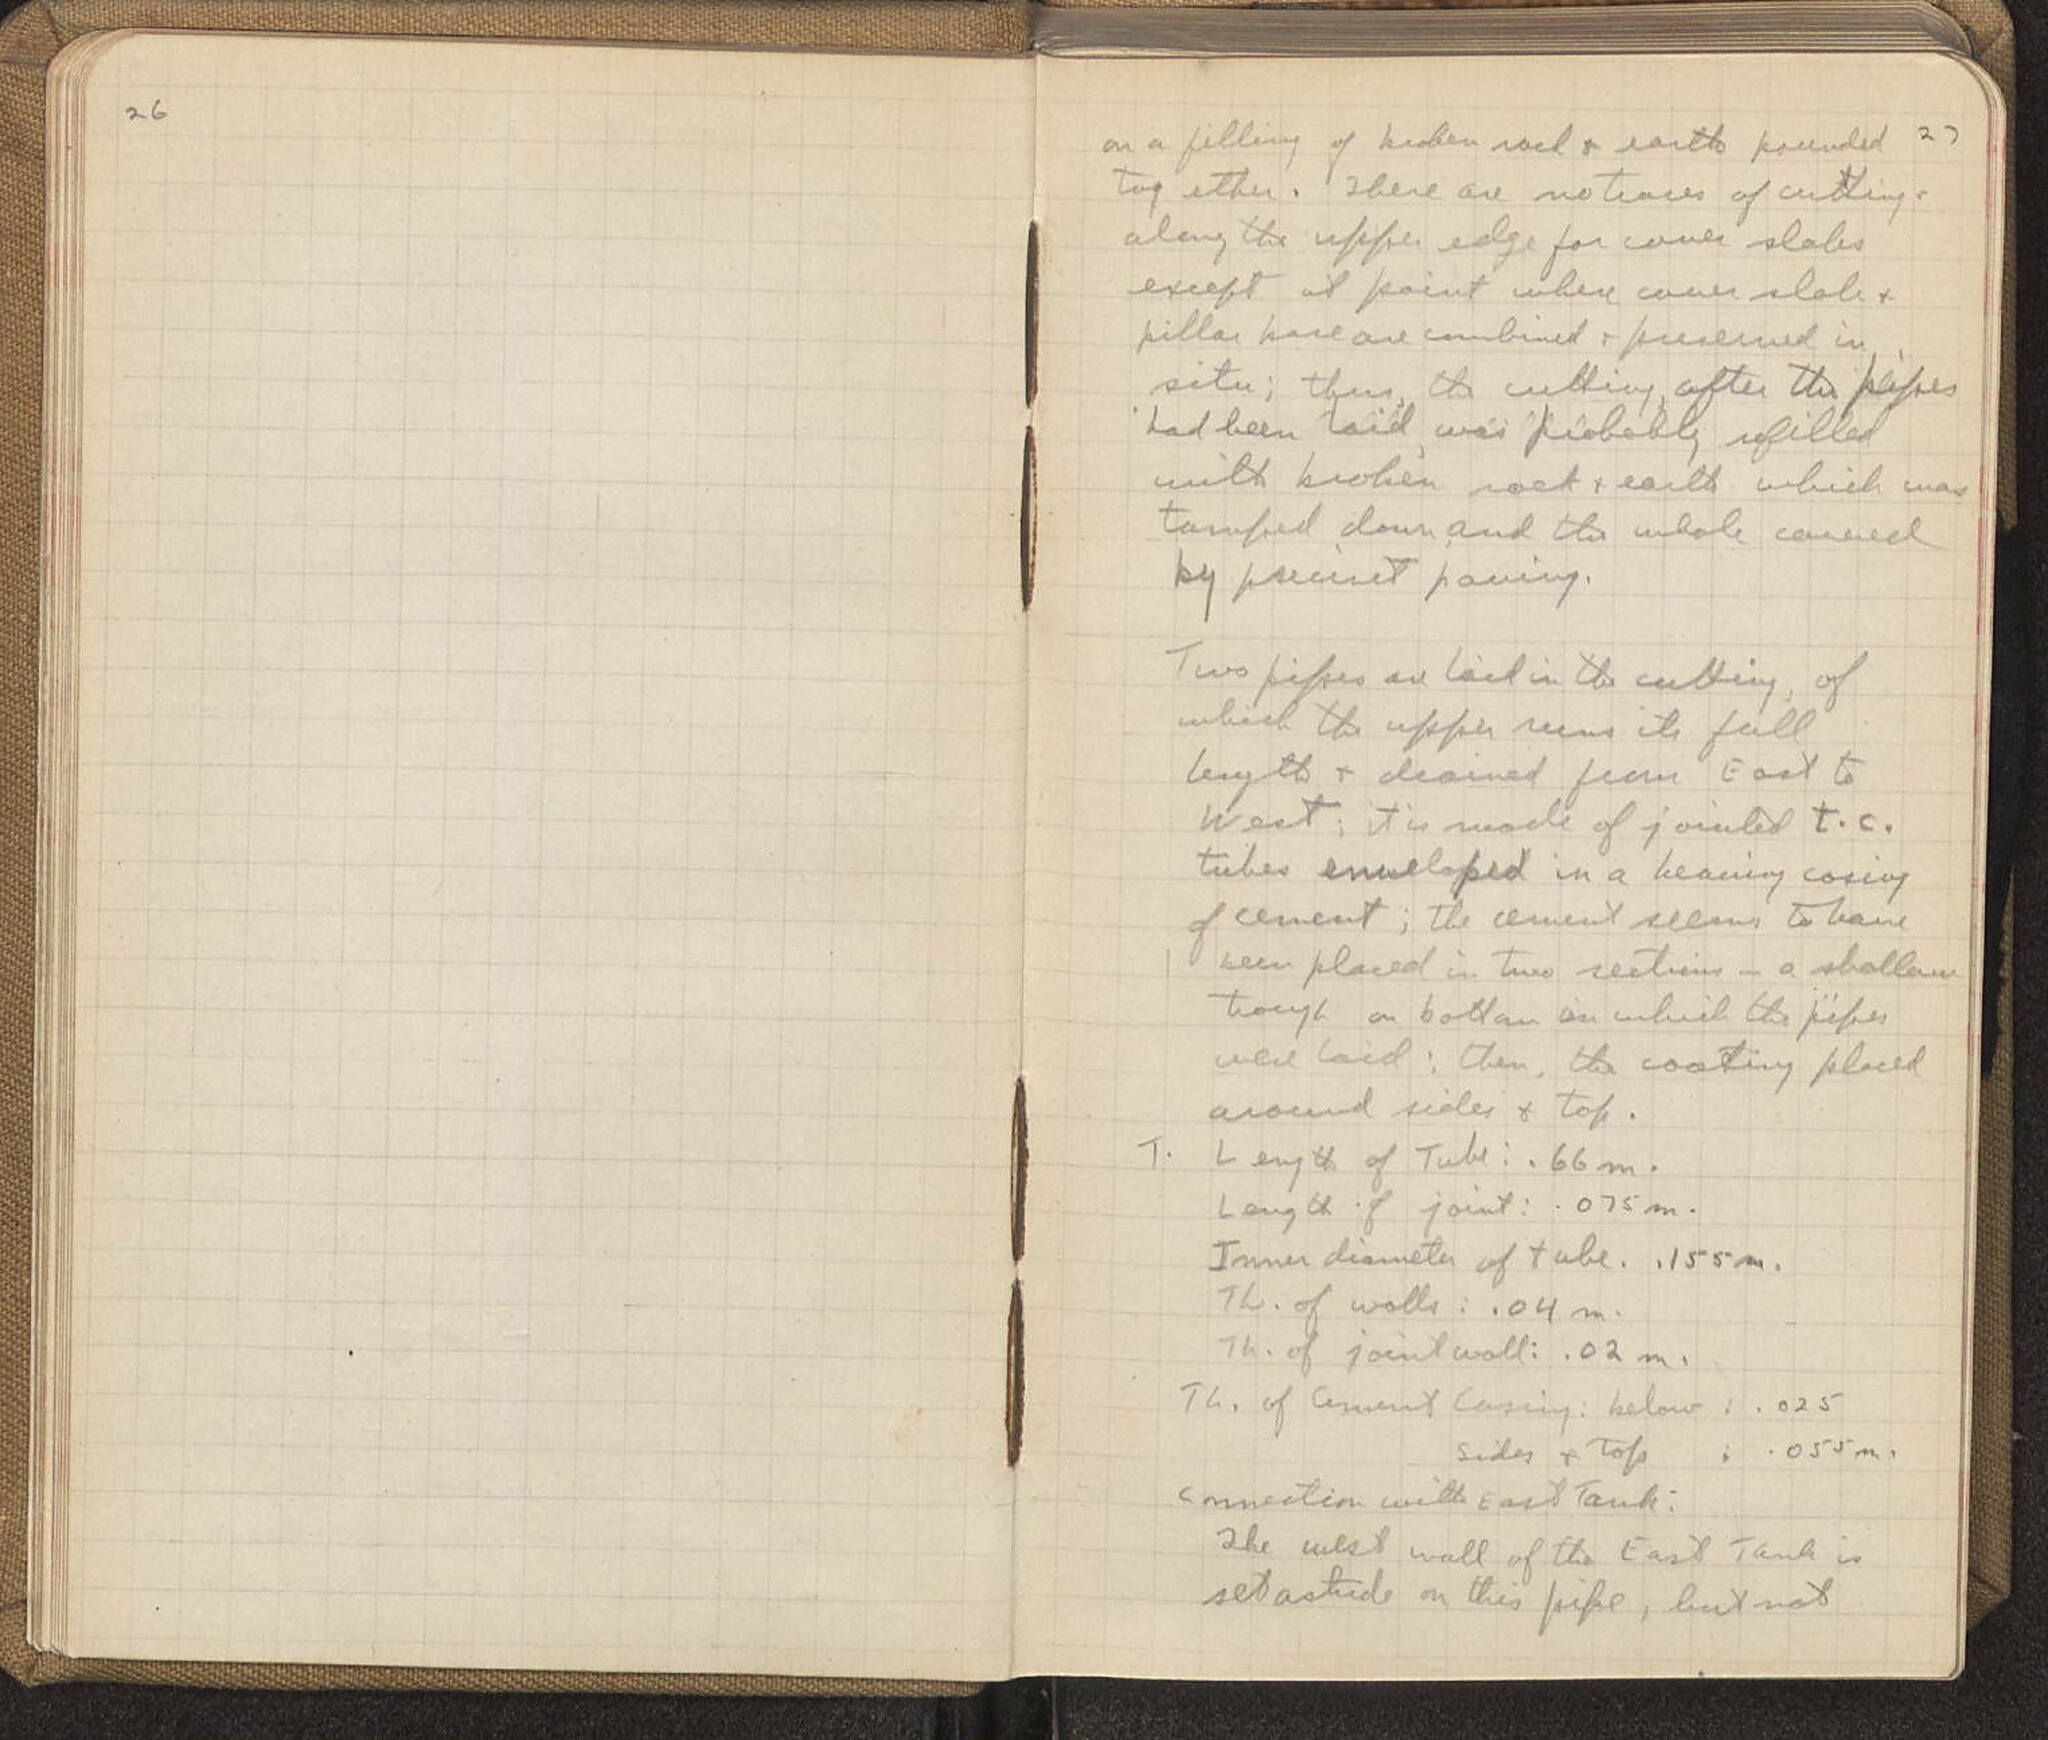 26
27
on a filling of broken rock & earth pounded
together. There are no traces of cutting
along the upper edge for cover slabs
except at point where cover slab &
pillar base are combined & preserved in
situ; thus, the cutting, after the pipes
had been laid, was probably refilled
with broken rock & earth which was
tamped down and the whole covered
by precinct paving.
Two pipes are laid in the cutting, of
which the upper runs its full
length & drained from East to
West; it is made of jointed t.c.
tubes enveloped in a heavy casing
of cement; the cement seems to have
been placed in two sections – a shallow
trough on bottom in which the pipes
were laid; then, the coating placed
around sides & top.
T. Length of Tube: .66 m.
Length of joint: .075 m.
Inner diameter of tube. .155 m.
Th. of walls: .04 m.
Th. of joint wall: .02 m.
Th. of Cement Casing: below: .025
sides & top : .055 m.
Connection with East Tank:
The west wall of the East Tank is
set astride on this pipe, but not